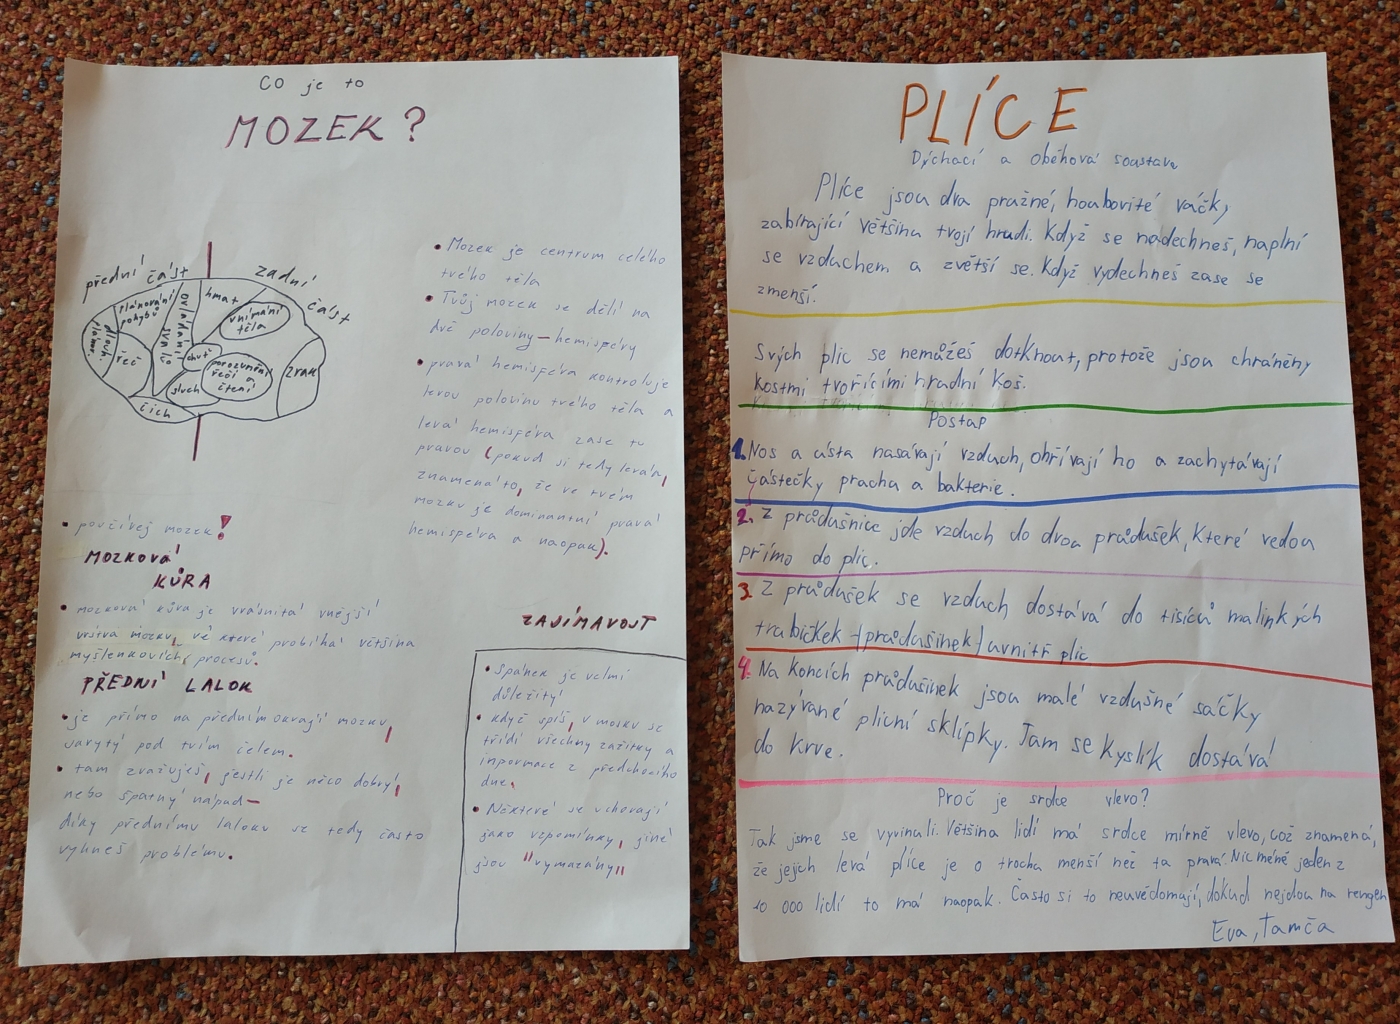 CO je to
MOZEK?
přední část
zadní část
plánování pohybů
ovládání svalů
hmat
vnímání těla
řeč
chuť
sluch
porozumění řeči a čtení
zrak
čich
• Mozek je centrum celého
tvého těla
• Tvůj mozek se dělí na
dvě poloviny - hemisféry
• pravá hemisféra kontroluje
levou polovinu tvého těla a
levá hemisféra zase tu
pravou (pokud si tedy levák,
znamená to, že ve tvém
mozku je dominantní pravá
hemisféra a naopak).
• používej mozek!
MOZKOVÁ
KŮRA
• mozková kůra je vrásnitá vnější
vrstva mozku, ve které probíhá většina
myšlenkových procesů.
PŘEDNÍ LALOK
• je přímo na předním okraji mozku,
ukrytý pod tvím čelem.
• tam zvažuješ, jestli je něco dobrý,
nebo špatný nápad -
díky přednímu laloku se tedy často
vyhneš problému.
ZAJÍMAVOST
• Spánek je velmi
důležitý
• když spíš, v mozku se
třídí všechny zážitky a
informace z předchozího
dne.
• Některé se uchovají
jako vzpomínky, jiné
jsou "vymazány"
PLÍCE
Dýchací a oběhová soustava
Plíce jsou dva pružné, houbovité váčky,
zabírající většinu tvojí hrudi. Když se nadechneš, naplní
se vzduchem a zvětší se. Když vydechneš zase se
zmenší.
Svých plic se nemůžeš dotknout, protože jsou chráněny
kostmi tvořícími hrudní koš.
Postup
1. Nos a ústa nasávají vzduch, ohřívají ho a zachytávají
částečky prachu a bakterie.
2. Z průdušnice jde vzduch do dvou průdušek, které vedou
přímo do plic.
3. Z průdušek se vzduch dostává do tisíců malinkých
trubiček - průdušinek - uvnitř plic
4. Na koncích průdušinek jsou malé vzdušné sáčky
nazývané plicní sklípky. Tam se kyslík dostává
do krve.
Proč je srdce vlevo?
Tak jsme se vyvinuli. Většina lidí má srdce mírně vlevo, což znamená,
že jejich levá plíce je o trochu menší než ta pravá. Nicméně jeden z
10 000 lidí to má naopak. Často si to neuvědomují, dokud nejdou na rengen
Eva, Tamča